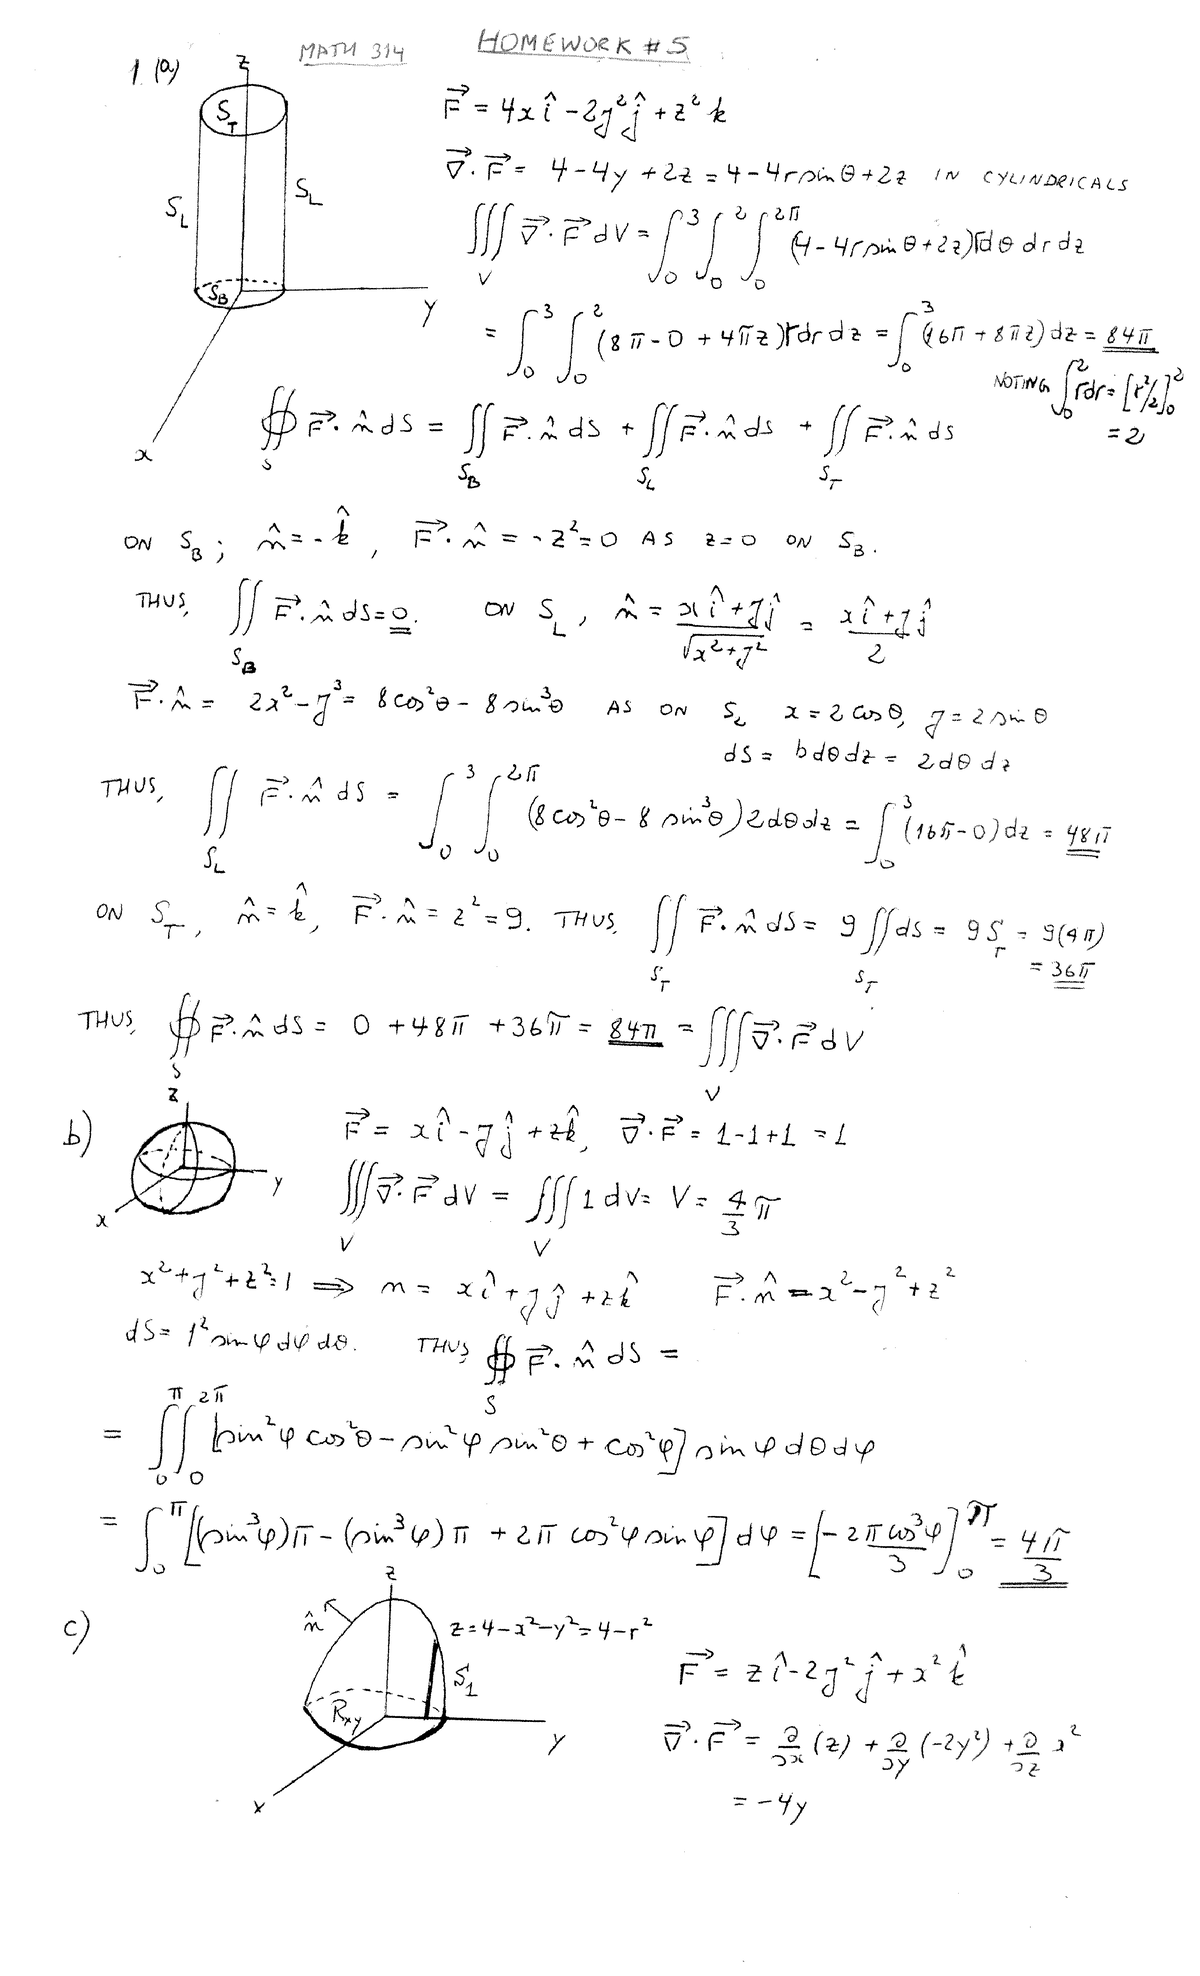 MATH 314 HOMEWORK # 5
1 (a)
z
S_T
S_L
S_L
S_B
y
x
F⃗ = 4x î - 2y² ĵ + z² k
∇⃗·F⃗ = 4 - 4y + 2z = 4 - 4r sin θ + 2z IN CYLINDRICALS
∭_V ∇⃗·F⃗ dV = ∫_0^3 ∫_0^2 ∫_0^{2π} (4 - 4r sin θ + 2z) r dθ dr dz
= ∫_0^3 ∫_0^2 (8π - 0 + 4πz) r dr dz = ∫_0^3 (16π + 8πz) dz = 84π
NOTING ∫_0^2 r dr = [r²/2]_0^2
= 2
∯_S F⃗·n̂ dS = ∬_{S_B} F⃗·n̂ dS + ∬_{S_L} F⃗·n̂ dS + ∬_{S_T} F⃗·n̂ dS
ON S_B; n̂ = -k̂, F⃗·n̂ = -z² = 0 AS z = 0 ON S_B.
THUS, ∬_{S_B} F⃗·n̂ dS = 0. ON S_L, n̂ = (x î + y ĵ)/√(x² + y²) = (x î + y ĵ)/2
F⃗·n̂ = 2x² - y³ = 8 cos²θ - 8 sin³θ AS ON S_L x = 2 cos θ, y = 2 sin θ
dS = b dθ dz = 2 dθ dz
THUS, ∬_{S_L} F⃗·n̂ dS = ∫_0^3 ∫_0^{2π} (8 cos²θ - 8 sin³θ) 2 dθ dz = ∫_0^3 (16π - 0) dz = 48π
ON S_T, n̂ = k̂, F⃗·n̂ = z² = 9. THUS, ∬_{S_T} F⃗·n̂ dS = 9 ∬_{S_T} dS = 9 S_T = 9(4π)
= 36π
THUS, ∯_S F⃗·n̂ dS = 0 + 48π + 36π = 84π = ∭_V ∇⃗·F⃗ dV
b)
z
y
x
F⃗ = x î - y ĵ + z k̂, ∇⃗·F⃗ = 1 - 1 + 1 = 1
∭_V ∇⃗·F⃗ dV = ∭_V 1 dV = V = 4/3 π
x² + y² + z² = 1 ⟹ n = x î + y ĵ + z k̂ F⃗·n̂ = x² - y² + z²
dS = 1² sin φ dφ dθ. THUS, ∯_S F⃗·n̂ dS =
= ∫_0^π ∫_0^{2π} [sin²φ cos²θ - sin²φ sin²θ + cos²φ] sin φ dθ dφ
= ∫_0^π [(sin³φ)π - (sin³φ)π + 2π cos²φ sin φ] dφ = [-2π cos³φ/3]_0^π = 4π/3
c)
z
n̂
z = 4 - x² - y² = 4 - r²
S_1
R_xy
y
x
F⃗ = z î - 2y² ĵ + x² k̂
∇⃗·F⃗ = ∂/∂x (z) + ∂/∂y (-2y²) + ∂/∂z x²
= -4y